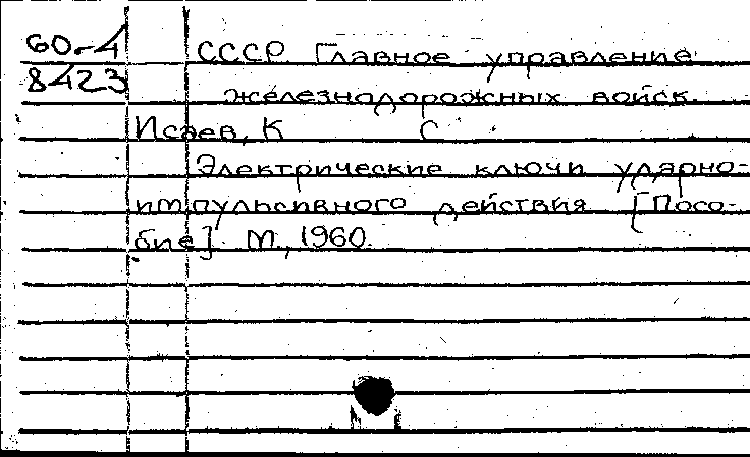 60-4 СССР. Главное управление
8423 железнодорожных войск.
Исаев, К С.
Электрические ключи ударно-
импульсивного действия [Посо-
бие]. М., 1960.